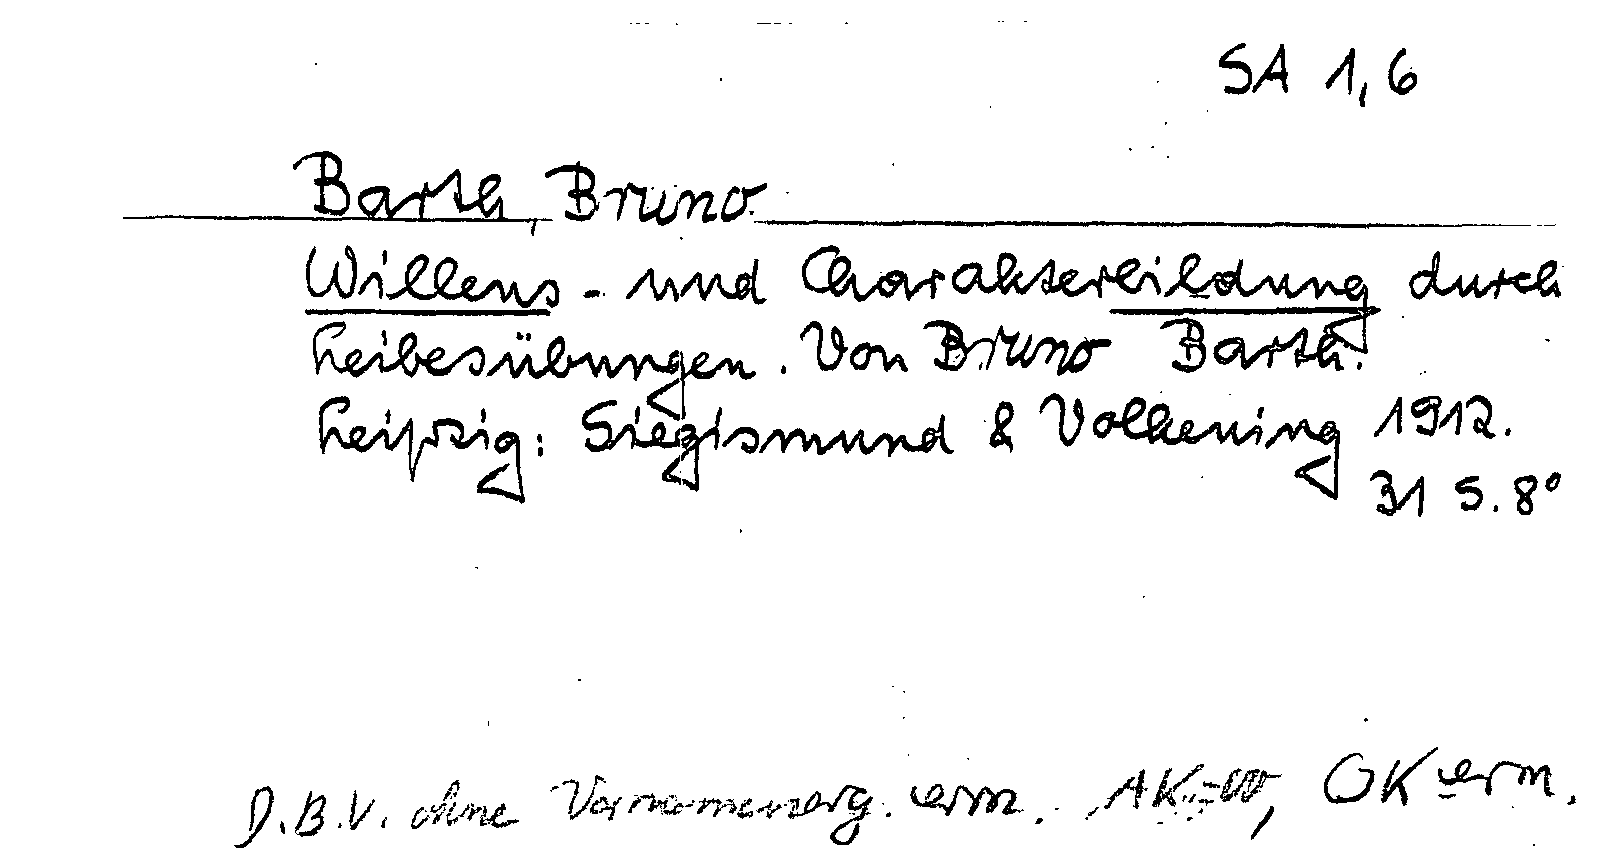 SA 1,6
Barth, Bruno
Willens- und Charakterbildung durch
Leibesübungen. Von Bruno Barth.
Leipzig: Siegismund & Volkening 1912.
31 S. 8°
D.B.V. ohne Vornamenerg. erm. AK=00, OK erm.